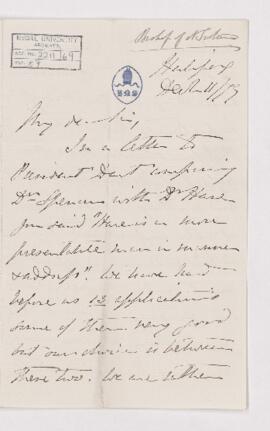 McGILL UNIVERSITY
ARCHIVES
ACC. NO. 2211/69
REF. 59
Bishop of N. Scotia
Halifax
Dec 11/79
My dear Sir,
In a letter to
President Dart comparing
Dr Spencer with Dr Hare
you said "Hare is a more
presentable man in manner
& address". We have had
before us 12 applications
some of them very good
but our choice is between
these two. We are rather